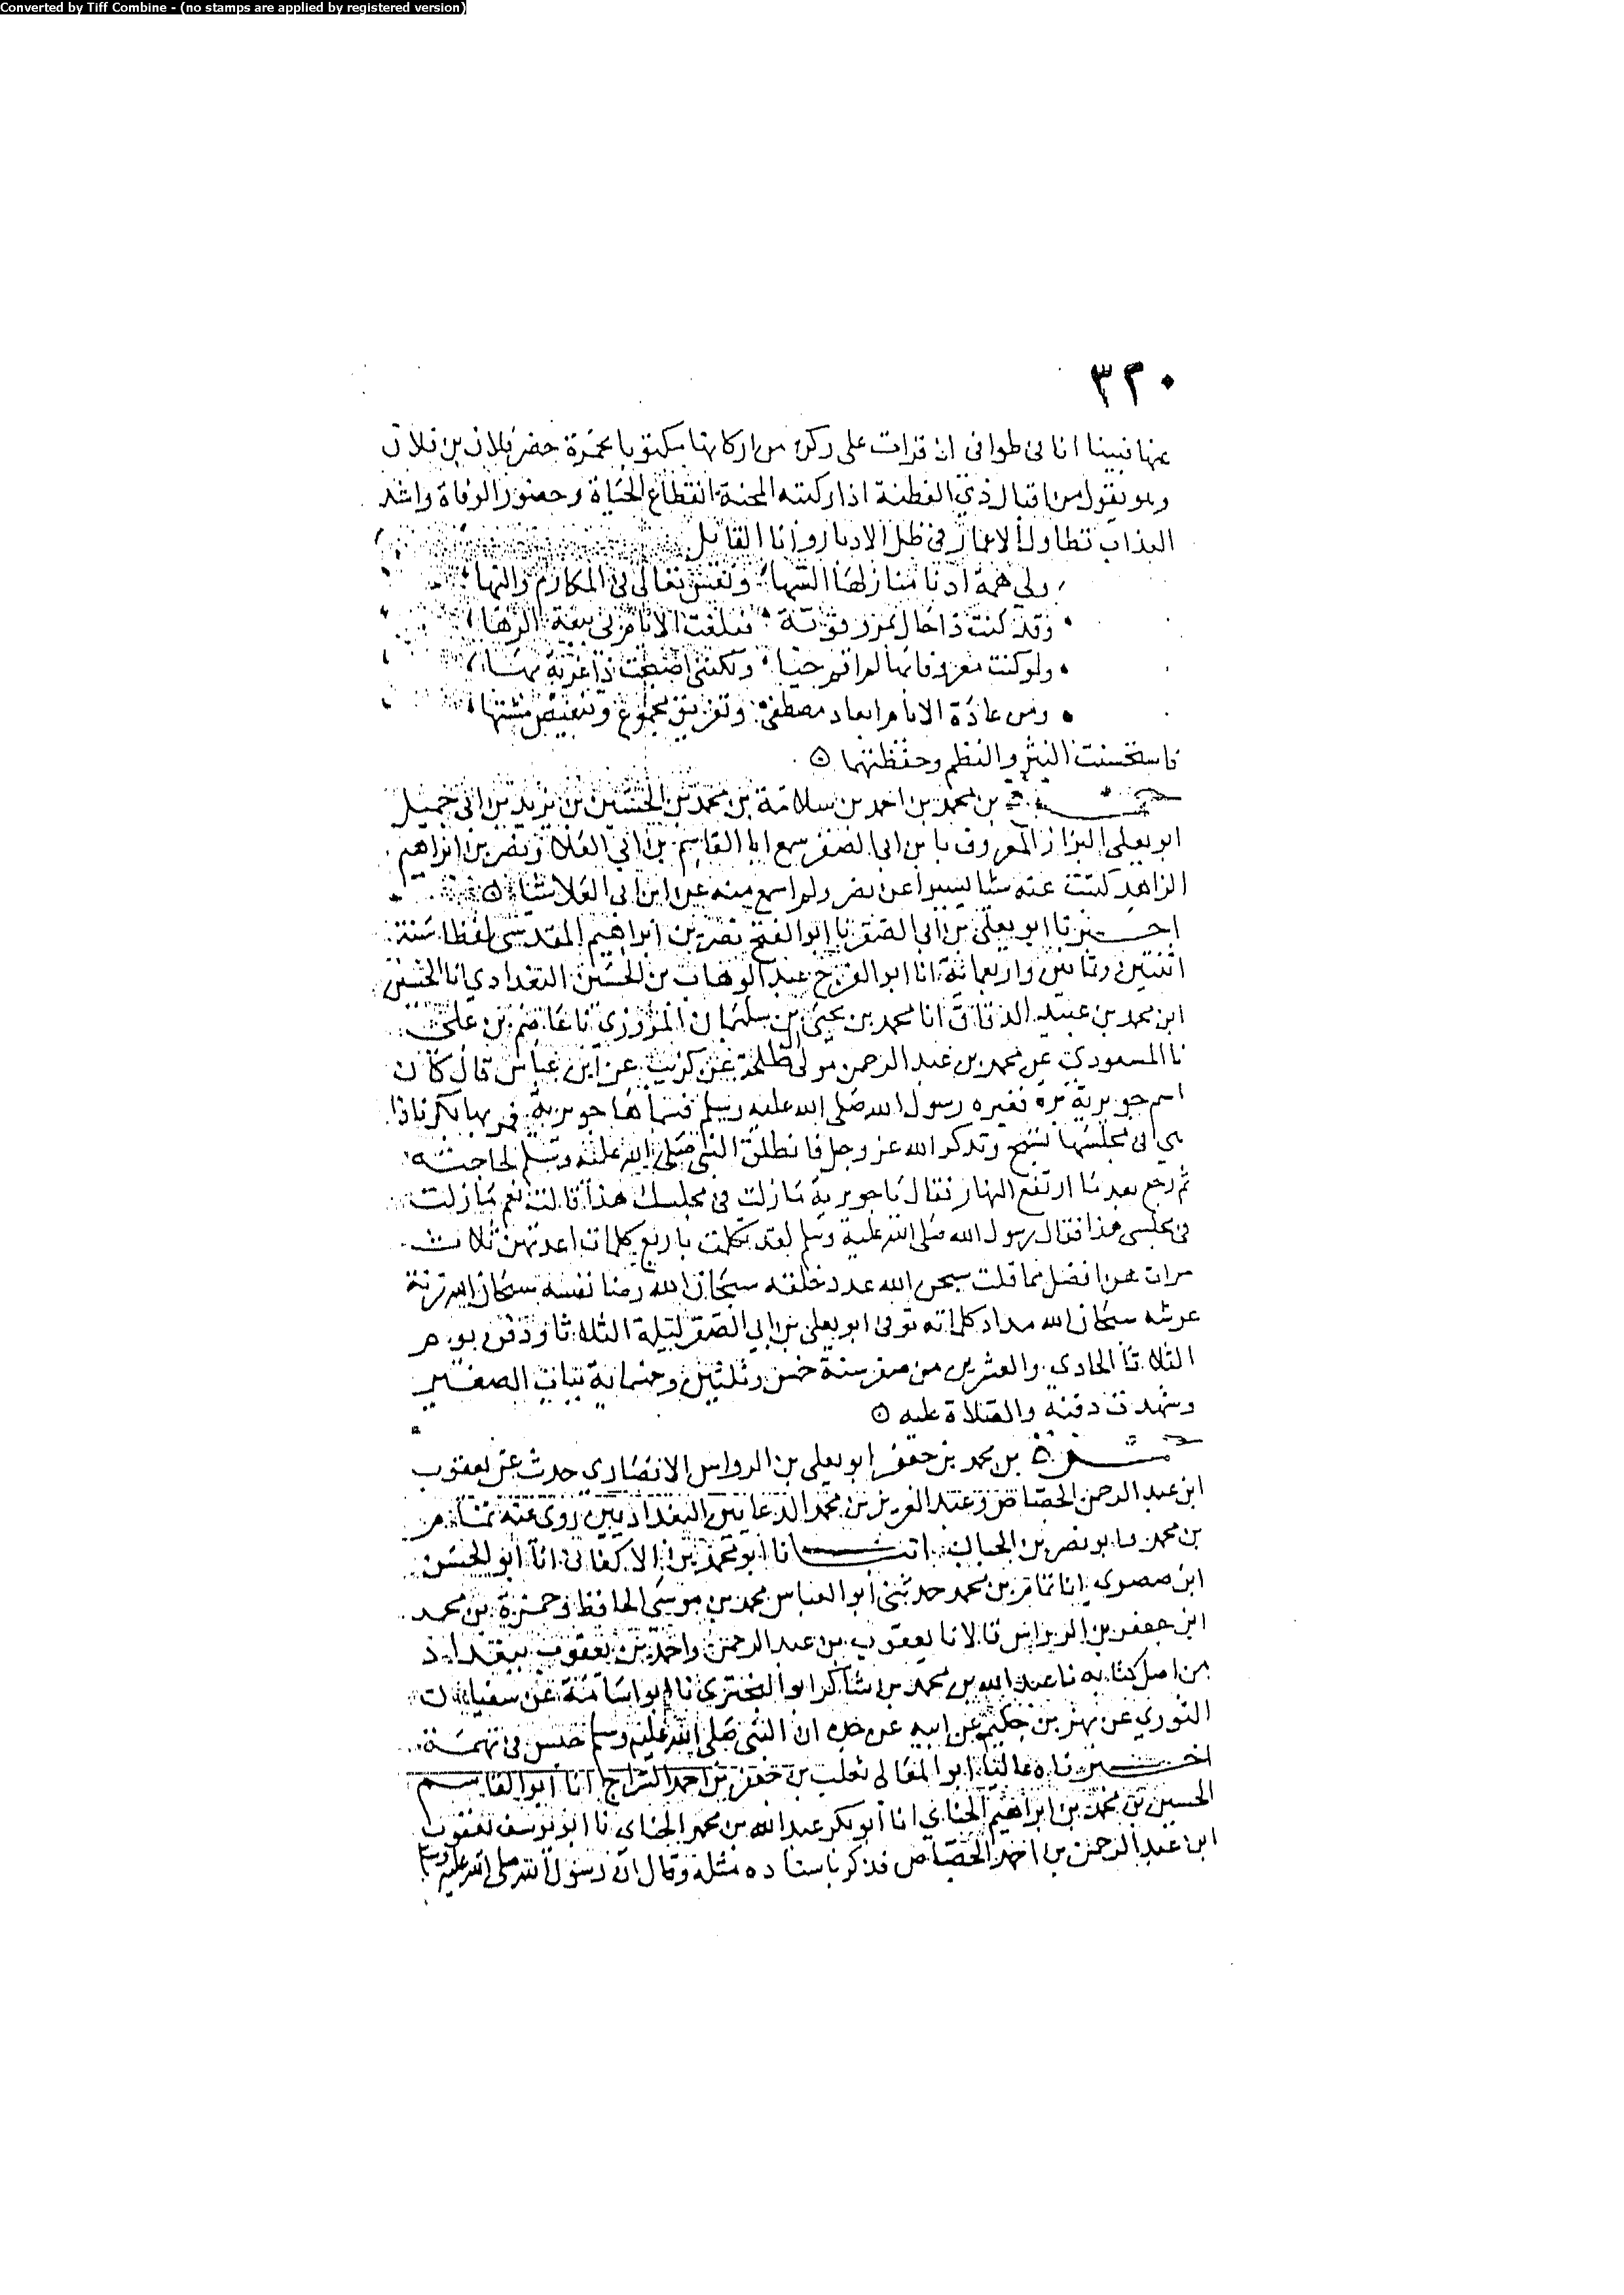 Converted by Tiff Combine - (no stamps are applied by registered version)
٣٢٠
عنها فبينا انا في طوافي اذ قرات على ركن من اركانها مكتوبا بحمرة حضر فلان بن فلان
وهو يقول من اقبال ذي الفطنة اذا ركبته المحنة انقطاع الحياة وحضور الوفاة واشد
العذاب تطاول الاعمار في ظل الادبار وانا القائل
ولي همة ادنا منازلها السها ونفس تعالى في المكارم والنها
وقد كنت ذا حال بمرو قريبة فبلغت الايام بي بيعة الرها
ولو كنت معروفا بها لم اقم حيا ولكنني اصبحت ذا غربة بها
ومن عادة الايام ابعاد مصطفى وتفريق مجموع وتنغيص مشتها
فاستحسنت النثر والنظم وحفظتهما
حمزة بن محمد بن احمد بن سلامة بن محمد بن الحسين بن يزيد بن ابي جميل
ابو يعلى البزاز المعروف بابن ابي الصقر سمع ابا القاسم بن ابي العلا ونصر بن ابراهيم
الزاهد كتبت عنه شيا يسيرا عن نصر ولم اسمع منه عن ابن ابي العلا شيا
اخبرنا ابو يعلى بن ابي الصقر نا ابو الفتح نصر بن ابراهيم المقدسي لفظا سنة
اثنتين وثمانين واربعمائة انا ابو الفرج عبد الوهاب بن الحسين البغدادي انا الحسين
ابن محمد بن عبيد الدقاق انا محمد بن يحيى بن سليمان المروزي نا عاصم بن علي
نا المسعودي عن محمد بن عبد الرحمن مولى طلحة عن كريب عن ابن عباس قال كان
اسم جويرية بره فغيره رسول الله صلى الله عليه وسلم فسماها جويرية فمر بها بكر فاذا
هي في مجلسها تسبح وتذكر الله عز وجل فانطلق النبي صلى الله عليه وسلم لحاجته
ثم رجع بعد ما ارتفع النهار فقال يا جويرية ما زلت في مجلسك هذا قالت نعم ما زلت
في مجلسي هذا فقال رسول الله صلى الله عليه وسلم لقد تكلمت باربع كلمات اعدتهن ثلاث
مرات هن افضل مما قلت سبحن الله عدد خلقه سبحان الله رضا نفسه سبحان الله زنة
عرشه سبحان الله مداد كلماته توفي ابو يعلى بن ابي الصقر ليلة الثلاثا ودفن يوم
الثلاثا الحادي والعشرين من صفر سنة خمس وثلثين وخمسمائة بباب الصغير
وشهدت دفنه والصلاة عليه
حمزة بن محمد بن جعفر ابو يعلى بن الرواس الانصاري حدث عن يعقوب
ابن عبد الرحمن الجصاص وعبد العزيز بن محمد الدعا البغداديين روى عنه تمام
بن محمد وابو نصر بن الجبان انبانا ابو محمد بن الاكفاني انا ابو الحسن
ابن صصرى انا تمام بن محمد حدثني ابو العباس محمد بن موسى الحافظ وحمزة بن محمد
ابن جعفر بن الرواس قالا نا يعقوب بن عبد الرحمن واحمد بن يعقوب ببغداد
من اصل كتابه نا عبد الله بن محمد بن شاكر ابو البختري نا ابو اسامة عن سفيان
الثوري عن بهز بن حكيم عن ابيه عن جده ان النبي صلى الله عليه وسلم حبس في تهمة
اخبرناه عاليا ابو المعالي ثعلب بن جعفر بن احمد السراج انا ابو القاسم
الحسين بن محمد بن ابراهيم الحنائي انا ابو بكر عبد الله بن محمد الحنائي نا ابو يوسف يعقوب
ابن عبد الرحمن بن احمد الجصاص فذكر باسناده مثله وقال ان رسول الله صلى الله عليه وسلم